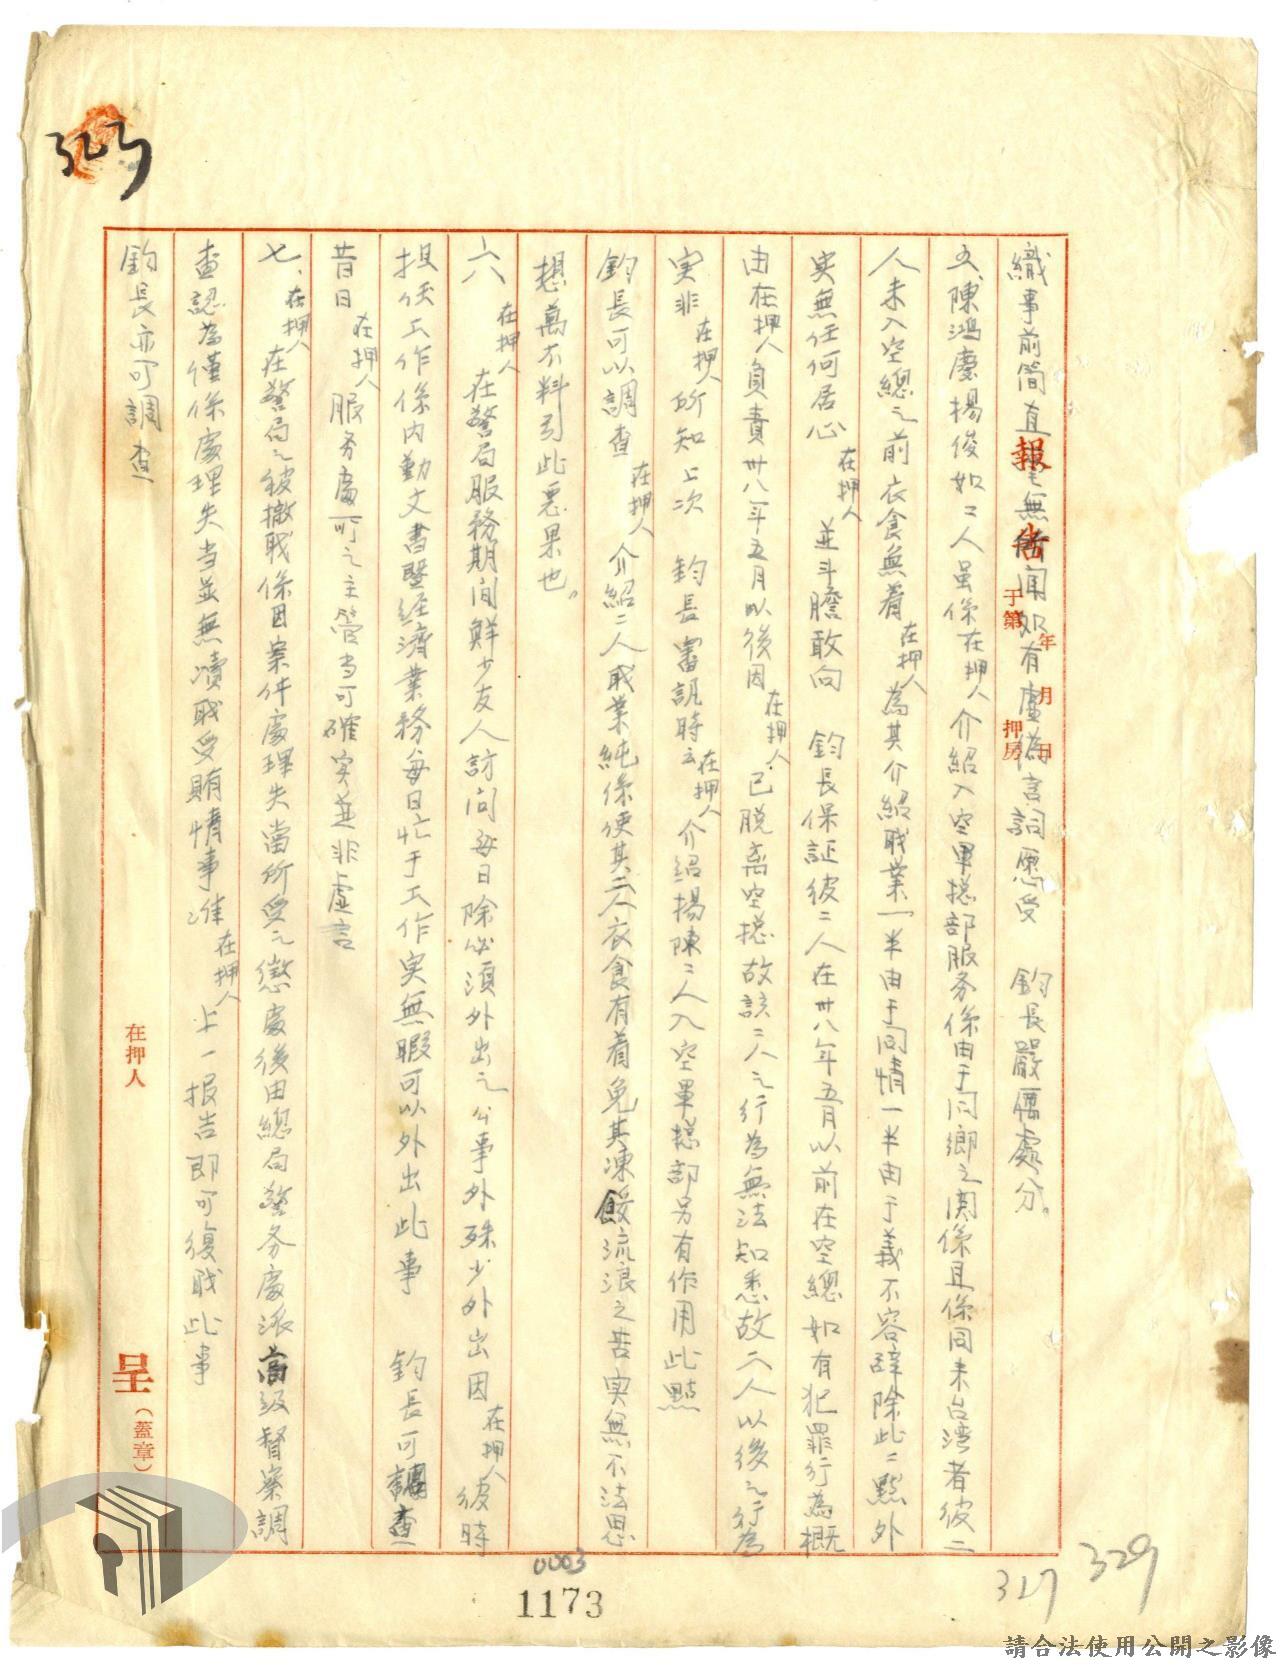 織事前简直毫無所闻如有虚偽言詞愿受　鈞長嚴厲處分。
五、陳鴻慶楊俊如二人虽係在押人介紹入空軍総部服务係由于同鄉之関係且係同来台湾者彼二
人未入空總之前衣食無着在押人為其介紹職業一半由于同情一半由于義不容辞除此二點外
实無任何居心在押人並斗膽敢向　鈞長保証彼二人在卅八年五月以前在空總如有犯罪行為概
由在押人負責卅八年五月以後因在押人已脱离空総故該二人之行為無法知悉故二人以後之行為
实非在押人所知上次　鈞長審訊時云在押人介紹楊陳二人入空軍総部另有作用此點
鈞長可以調查在押人介紹二人職業純係使其二人衣食有着免其凍餒流浪之苦实無不法思
想萬不料引此惡果也。
六、在押人在警局服務期间鮮少友人訪问每日除必須外出之公事外殊少外出因在押人彼時
担任工作係内勤文書暨經濟業務每日忙于工作实無暇可以外出此事　鈞長可調查
昔日在押人服务處所之主管当可確实並非虚言
七、在押人在警局之被撤職係因案件處理失當所受之懲處後由總局警务處派高級督察調
查認為僅係處理失当並無瀆職受賄情事准在押人上一报告即可復職此事
鈞長亦可調查
報告
年　月　日
于第　押房
在押人
呈（蓋章）
323
0003
1173
317
329
請合法使用公開之影像